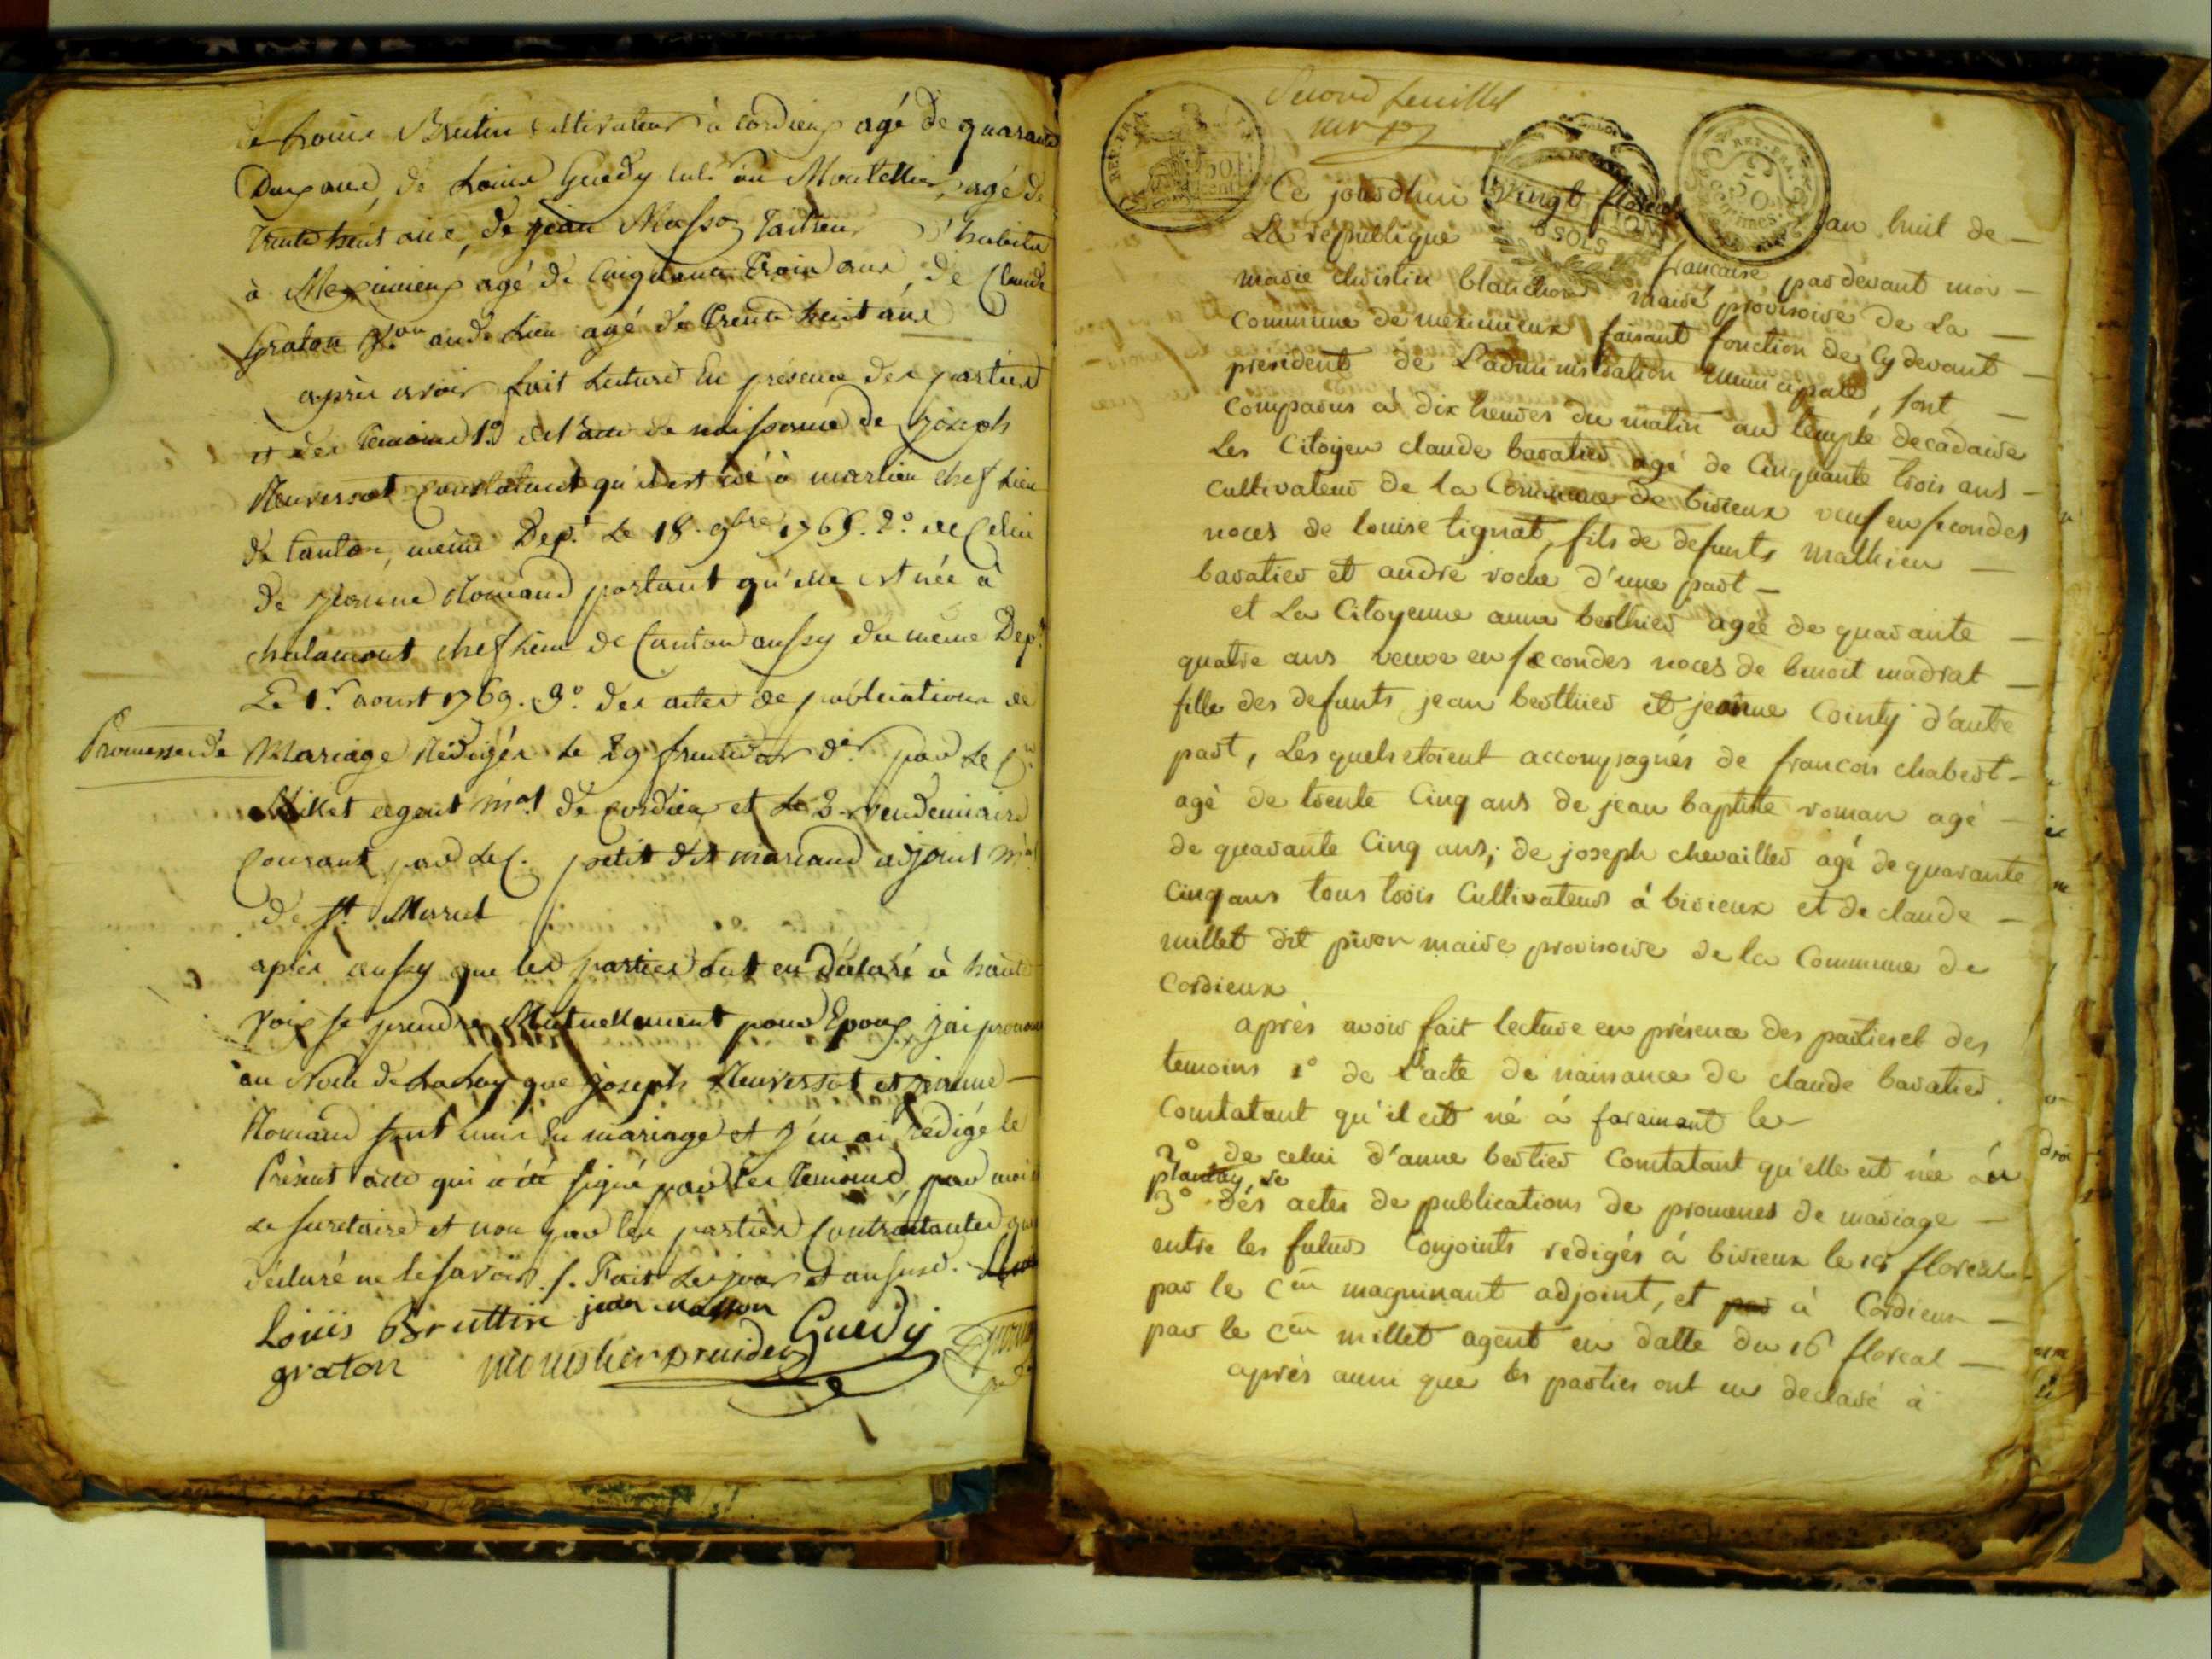 de Louis Brutin cultivateur à Cordieux agé de quarante
Deux ans, de Louis Guedy cult. au Montellier, agé de
trente huit ans, de jean Masson
à Meximieux agé de Cinquante Trois ans, de Claude
Graton audt Lieu agé de trente huit ans
après avoir fait Lecture En présence des parties
et des temoins 1° de l'acte de naissance de joseph
Neuvessat Constatant qu'il est né à marlieu chef Lieu
de Canton, même Dep.t Le 18. 9bre 1765. 2° de Celui
de jeanne Nomand portant qu'elle est née à
chalamont chef Lieu de Canton aussy du même Dep.t
Le 1.r aoust 1769. 3° des actes de publications de
Promesses de
Mariage Rédigés le 29 fructidor d.er par le C.n
Millet agent m.al de Cordieux et le 2 vendemiaire
Courant par le C. petit dit mariand adjoint m.al
de St. Marcel
après aussy que les parties ont eu déclaré à haute
voix se prendre Mutuellement pour Epoux, j'ai prononcé
au Nom de La Loy que joseph Neuvessat et jeanne
Nomand sont unis En mariage et j'en ai rédigé le
Présent acte qui a été signé par les temoins par moi
le secretaire et non par les parties Contractantes qui
déclaré ne le savoir. Fait les jour et an susd.
Louis Bruttin jean masson Guedy
graton
Second feuillet
REP. FRA.
50. cent.
5 SOLS
REP. FRA.
50 Centimes.
Ce jourdhui vingt floreal an huit de
La république francaise, par devant moi
marie christin blanchon maire provisoire de La
Commune de meximieux faisant fonction de Cy devant
président de L'administration municipale, sont
Comparus à dix heures du matin au temple decadaire
Les Citoyen claude baratier agé de Cinquante trois ans
Cultivateur de la Commune de birieux veuf en secondes
noces de louise tignat, fils de defunts mathieu
baratier et andré roche d'une part
et La Citoyenne anne berthier agée de quarante
quatre ans veuve en secondes noces de benoit madrat
fille des defunts jean berthier et jeanne Cointy d'autre
part, Les quels etoient accompagnés de francois chabert
agé de trente Cinq ans de jean baptiste roman agé
de quarante Cinq ans; de joseph chevailler agé de quarante
Cinq ans tous trois Cultivateurs à birieux et de claude
millet dit pivon maire provisoire de la Commune de
Cordieux
après avoir fait lecture en présence des parties et des
temoins 1° de L'acte de naissance de claude baratier
Constatant qu'il est né à faramant le
2° de celui d'anne bertier Constatant qu'elle est née au
plantay, le
3° des actes de publications de promesses de mariage
entre les futurs Conjoints redigés à birieux le 19 floreal
par le C.en maguinant adjoint, et par à Cordieux
par le C.en millet agent en datte du 16 floreal
après aussi que les parties ont eu declaré à